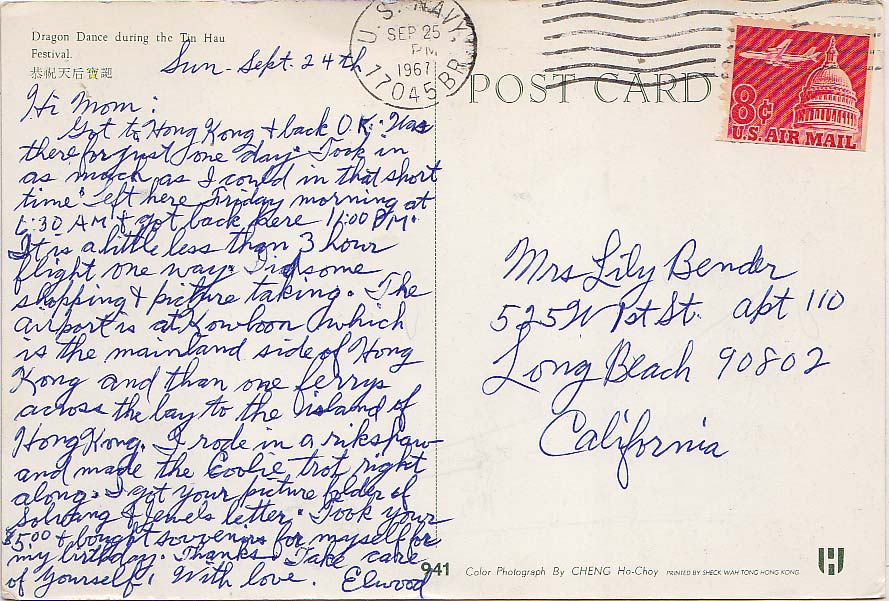 Dragon Dance during the Tin Hau
Festival.
恭祝天后寶誕
Sun - Sept. 24th
Hi Mom:
Got to Hong Kong & back O.K. Was
there for just one day. Took in
as much as I could in that short
time. Left here Friday morning at
6:30 AM & got back here 11:00 PM.
It is a little less than 3 hour
flight one way. Did some
shopping & picture taking. The
airport is at Kowloon which
is the mainland side of Hong
Kong and than one ferrys
across the bay to the island of
Hong Kong. I rode in a rikshaw
and made the Coolie trot right
along. I got your picture folder of
Solvang & Jewels letter. Took your
$5.00 & bought souvenirs for myself for
my birthday. Thanks. Take care
of yourself, With love. Elwood
U.S. NAVY
SEP 25
PM
1967
17045 BR.
POST CARD
8¢
U.S. AIR MAIL
Mrs Lily Bender
525 W 1st St. apt 110
Long Beach 90802
California
941
Color Photograph By CHENG Ho-Choy
PRINTED BY SHECK WAH TONG HONG KONG